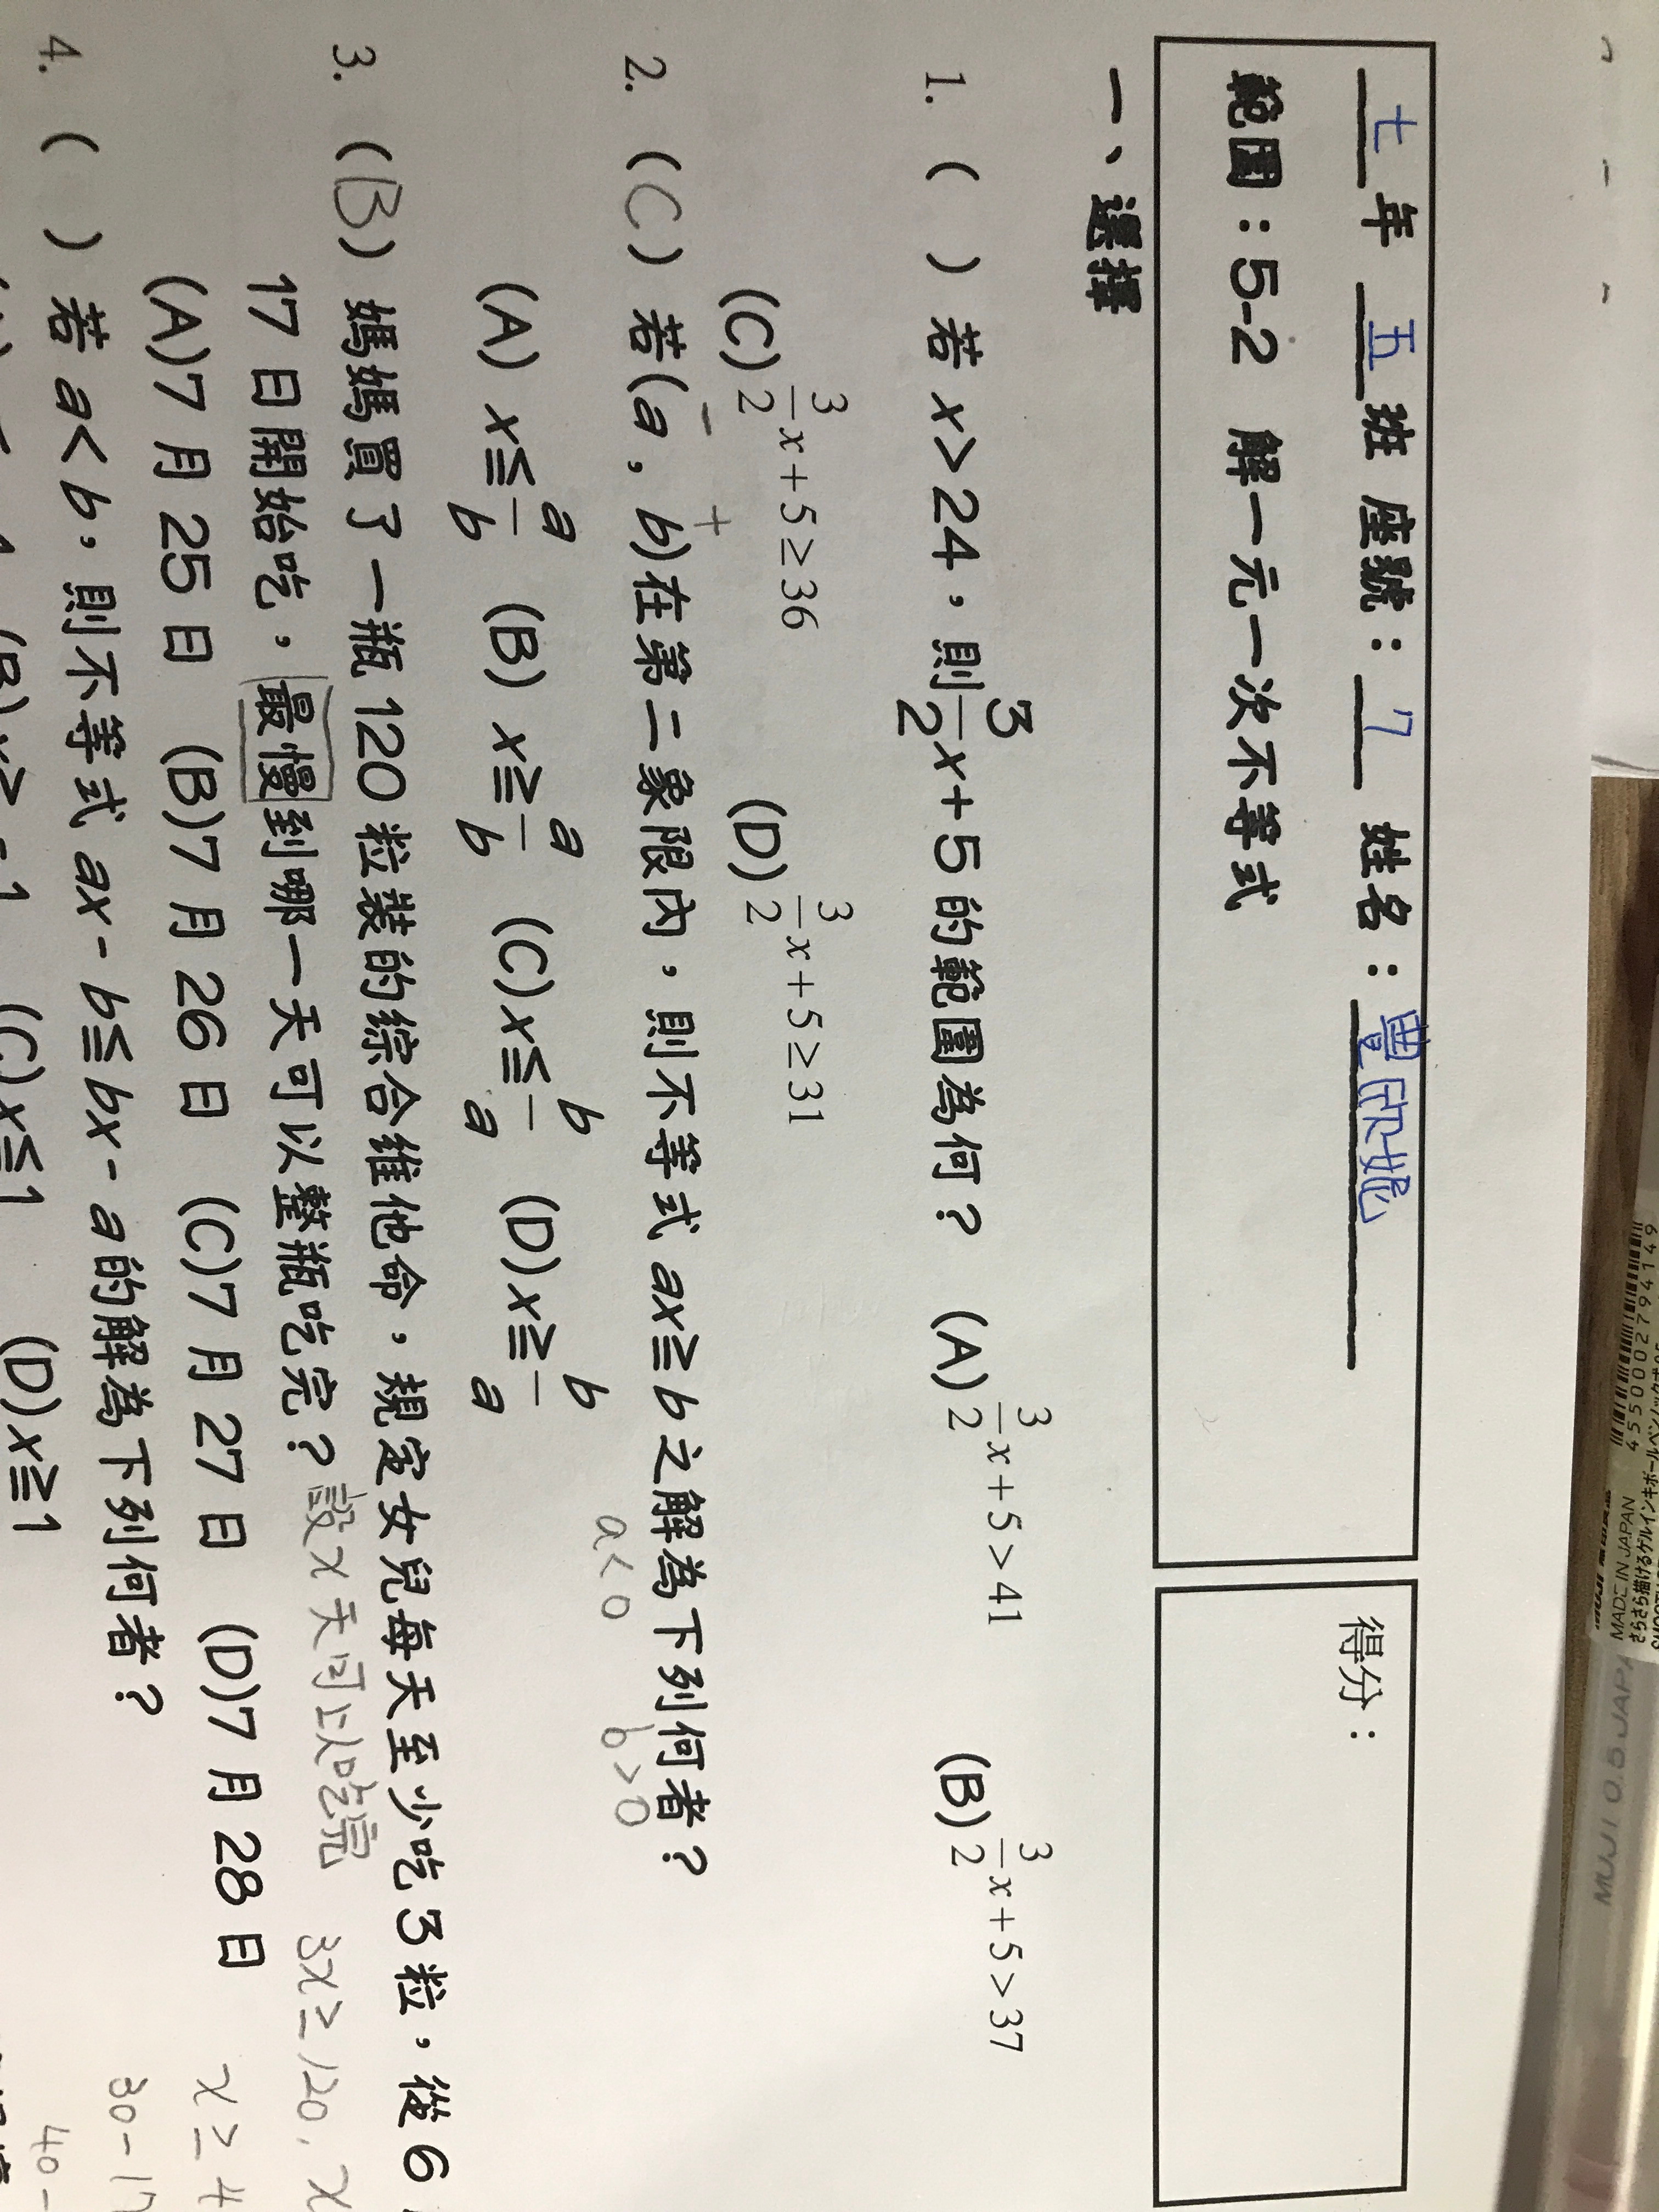 七年 五班 座號：7 姓名：豊欣妮
得分：
範圍：5-2 解一元一次不等式
一、選擇
1. ( ) 若 x>24，則 3/2 x+5 的範圍為何？ (A) 3/2 x+5>41 (B) 3/2 x+5>37
(C) 3/2 x+5≥36 (D) 3/2 x+5≥31
- +
2. (C) 若(a，b)在第二象限內，則不等式 ax≧b 之解為下列何者？
a<0 b>0
(A) x≦ a/b (B) x≧ a/b (C) x≦ b/a (D) x≧ b/a
3. (B) 媽媽買了一瓶 120 粒裝的綜合維他命，規定女兒每天至少吃 3 粒，從 6
17 日開始吃，最慢到哪一天可以整瓶吃完？ 設 x 天可以吃完 3x≥120, x
(A)7 月 25 日 (B)7 月 26 日 (C)7 月 27 日 (D)7 月 28 日 x≥4
30-17
4. ( ) 若 a<b，則不等式 ax-b≦bx-a 的解為下列何者？
40-
(C) x≦1 (D) x≧1
4550002794149
MADE IN JAPAN
さらさら描けるゲルインキボールペン
MUJI 0.5 JAPA